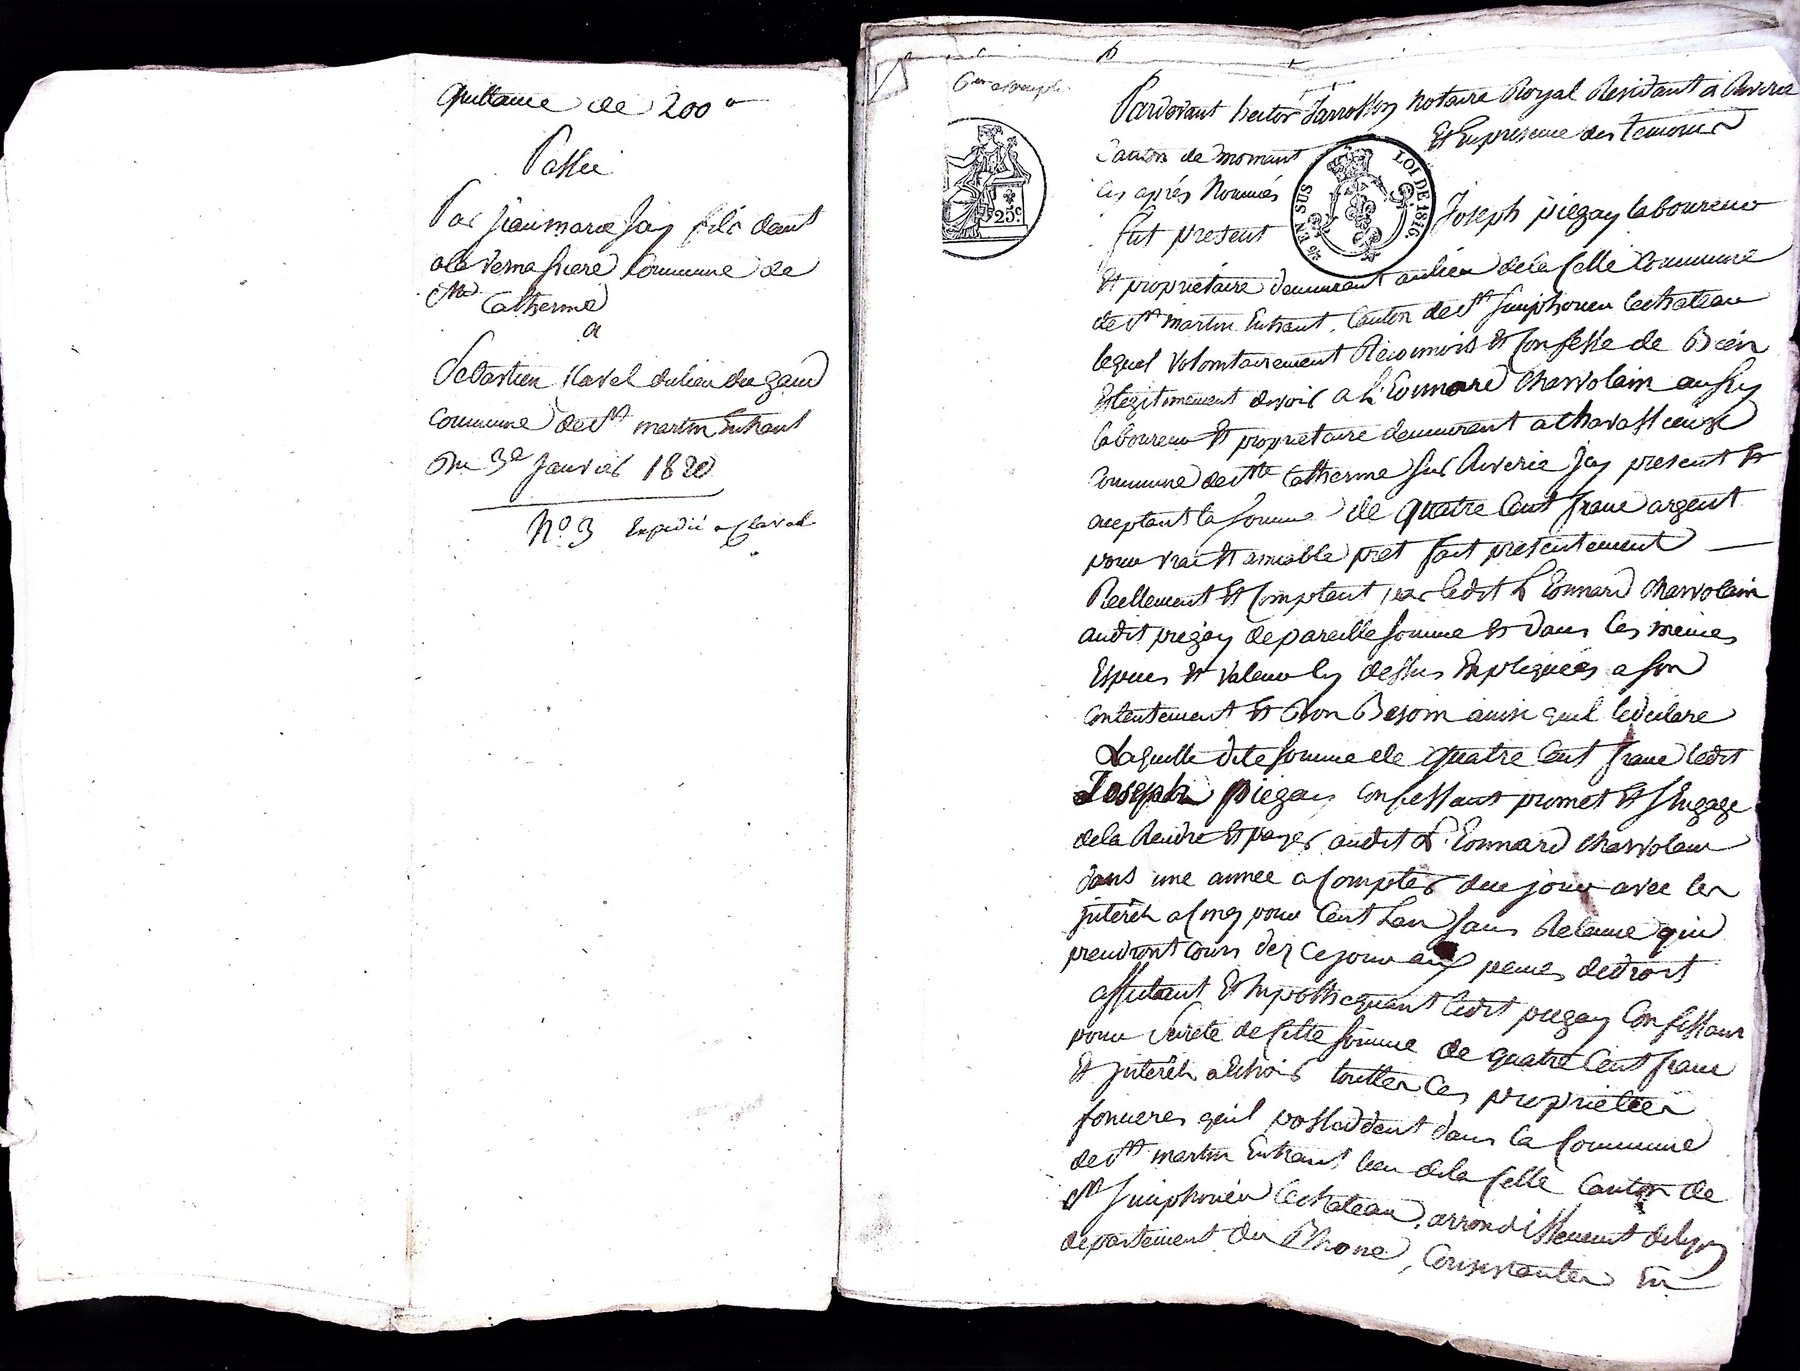 Quittance de 200
Passée
Par Jean marie Jay fils demt
a la Vernassiere Commune de
Ste Catherine
a
Sebastien Clavel du lieu du gand
commune de St martin Enhaut
Du 3e Janvier 1820
No 3 Expedié a Clavel
Pardevant hector Jarrosson notaire Royal Residant a Riverie
Canton de mornant Et En presence des temoins
cy après Nommés
fut present Joseph piegay laboureur
25c
EN SUS
LOI DE 1816
Et propriétaire demeurant au lieu de la Celle Commune
de St martin Enhaut, Canton de St Simphorien lechateau
lequel Volontairement Reconnois Et Confesse de Bien
Et legitimement devoir a L'Eonnard Charvolain aussy
laboureur Et propriétaire demeurant a
Commune de Ste Catherine sur Riverie Jcy present Et
aceptant la somme de quatre Cent franc argent
pour vrai Et amiable pret fait presentement
Reellement Et Comptant par ledit L'Eonnard Charvolain
audit piegay de pareille somme Et dans les mêmes
Especes Et Valeur cy dessus Expliquées a son
Contentement Et Bon Besoin ainsi quil le déclare
Laquelle dite somme de quatre Cent franc ledit
Joseph piegay Confessant promet Et sEngage
de la Rendre Et payer audit L'Eonnard Charvolain
dans une année a Compter du jour avec les
jnterêts a Cinq pour Cent Lan sans Retenue qui
prendront cours dez ce jour aux peines de droit
affectant Et hypothequant ledit piegay Confessant
pour sureté de Cette somme de quatre Cent franc
Et jnterêts a Echoir touttes Ces propriétées
foncieres quil possaddent dans la Commune
de St martin Enhaut, lieu de la Celle Canton de
St Simphorien lechateau, arrondissement de lyon
departement du Rhone, Consistantes En